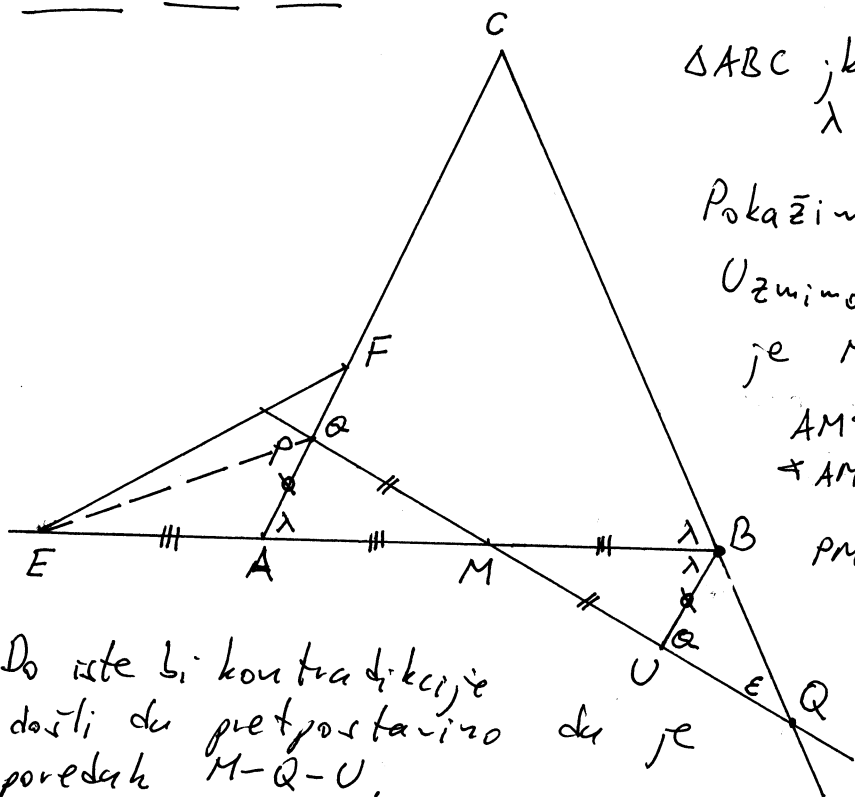 C
ΔABC jk
λ
Pokažim
Uzmimo
je M
F
AM
Q
P
∢AM
λ
λ
B
E
A
M
λ
PM
Q
U
ε
Q
Do iste bi kontradikcije
došli da pretpostavimo da je
poredak M-Q-U.